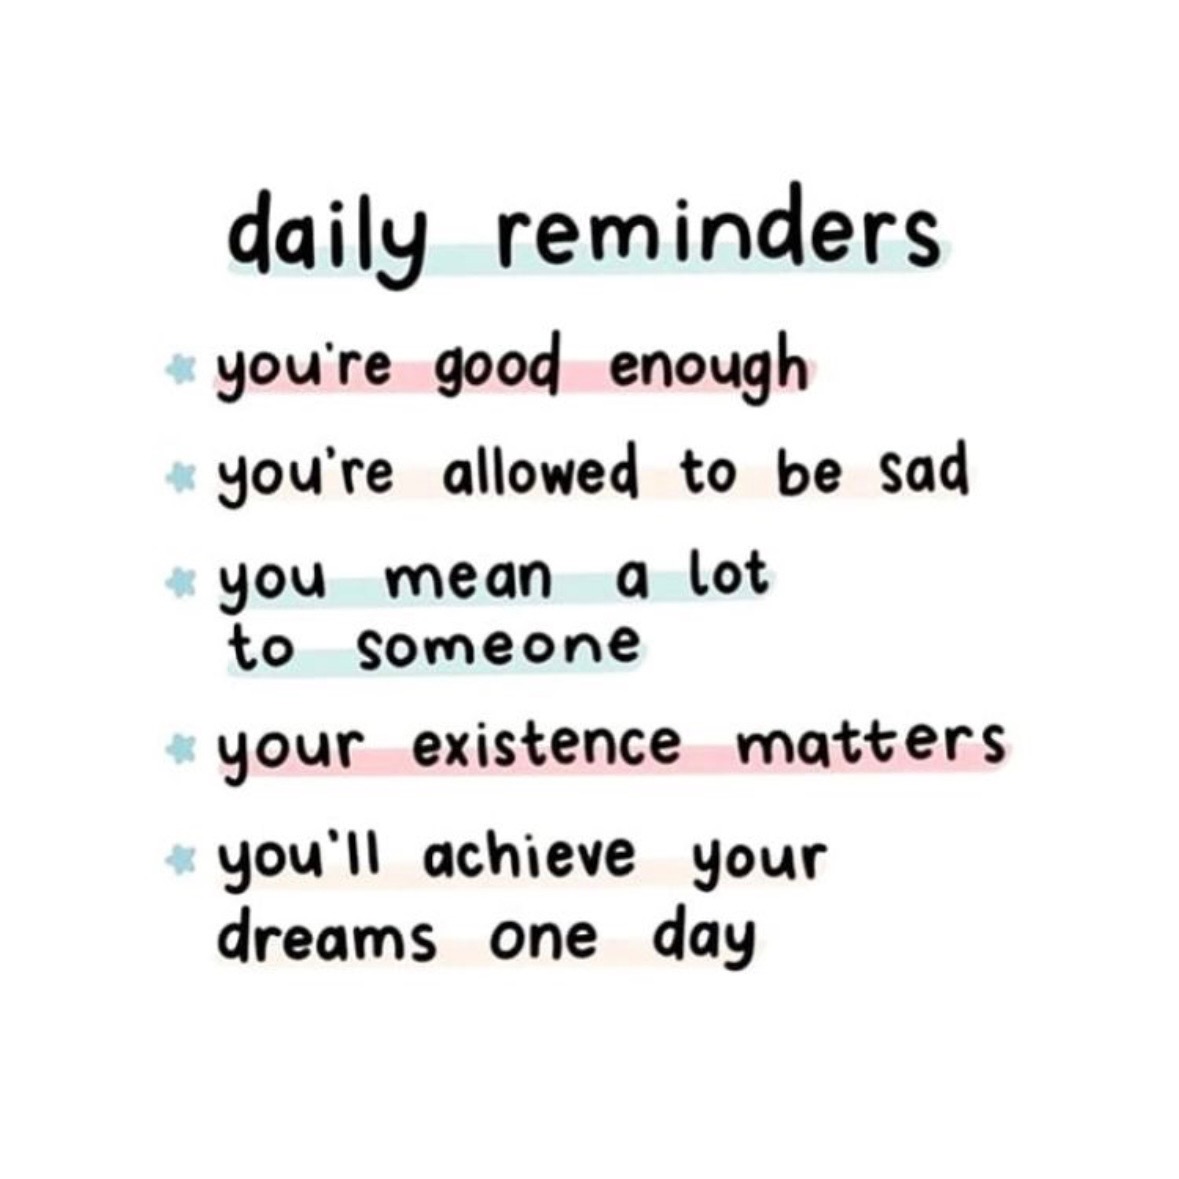 daily reminders
you're good enough
you're allowed to be sad
you mean a lot
to someone
your existence matters
you'll achieve your
dreams one day